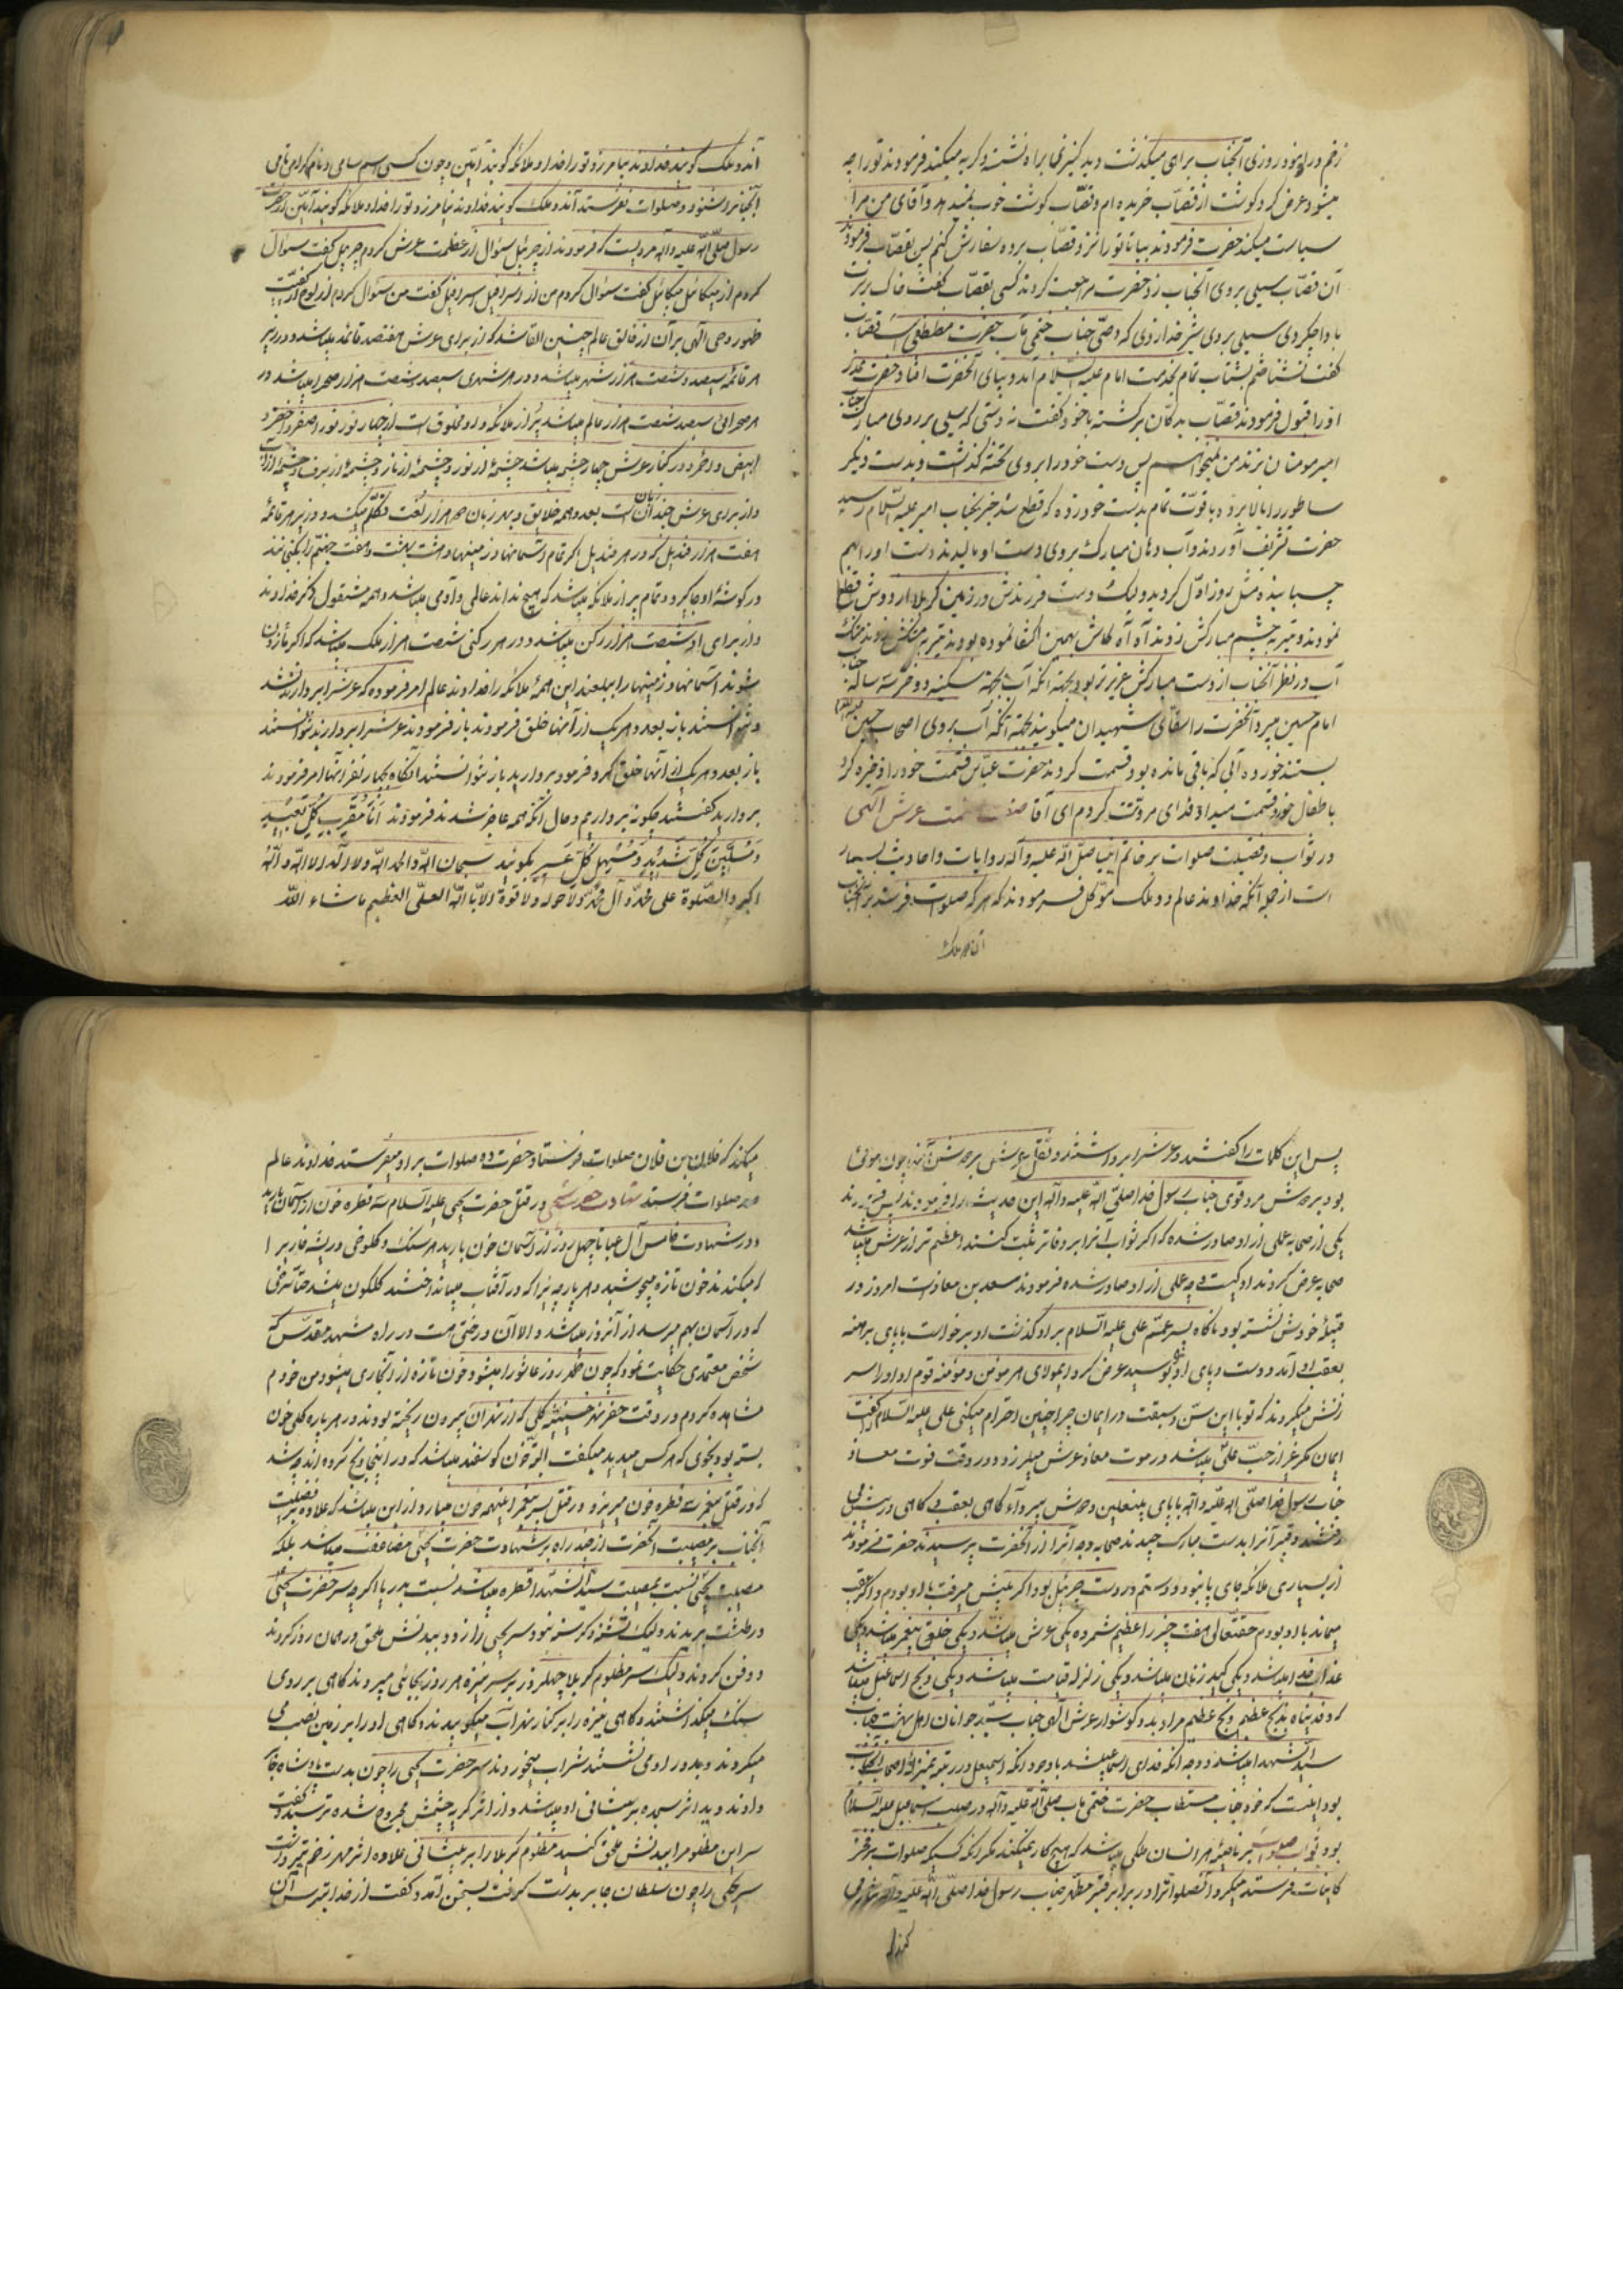 زخم در او نمود و روزی آنجناب براهی میگذشت دید کنیزی را براه نشسته و گریه میکند فرمودند تو را چه
میشود عرض کرد گوشت از قصّاب خریده ام و قصّاب گوشت خوب نمیدهد و آقای من مرا
سیاست میکند حضرت فرمودند بیا تا تو را نزد قصّاب برده سفارش کنم پس بقصّاب فرمودند
آن قصّاب سیلی بروی آنجناب زد حضرت مراجعت کردند کسی بقصّاب گفت خاک بر سرت
باد چه کردی سیلی بروی شیر خدا زدی که وصیّ جناب ختمی مآب حضرت مصطفی است قصّاب
گفت نشناختم بشتاب تمام بخدمت امام علیه السّلام آمد و بپای آنحضرت افتاد حضرت عذر
او را قبول فرمودند قصّاب بدکان برگشته با خود گفت دستی که سیلی بر روی مبارک جناب
امیر مومنان بزند من نمیخواهم پس دست خود را بروی تخته گذاشت و بدست دیگر
ساطور را بالا برده با قوّت تمام بدست خود زده که قطع شد خبر بجناب امیر علیه السّلام رسید
حضرت تشریف آوردند و آب دهان مبارک بروی دست او مالیدند دست او را بهم
چسبانیده مثل روز اوّل گردید ولیک دست فرزندش در زمین کربلا از دوش قطع
نمودند و تیر به چشم مبارکش زدند آه آه کاش بهمین اکتفا نموده بودند تیر به مشکش زدند مشک
آب در نظر آنجناب از دست مبارکش عزیزتر بود بجهة آنکه آب بجهة سکینه دختر سه ساله جناب
امام حسین میبرد آنحضرت را سقّای شهیدان میگویند بجهة آنکه آب بروی اصحاب حسین علیه السلام
بستند خورده آبی که باقی مانده بود قسمت کردند حضرت عبّاس قسمت خود را ذخیره کرد
باطفال خورد قسمت میداد فدای مروّتت گردم ای آقا صفت عظمت عرش الهی
در ثواب و فضیلت صلوات بر خاتم انبیا صلّی الله علیه و آله روایات و احادیث بسیار
است از جمله آنکه خداوند عالم دو ملک موّکل فرمودند که هر که صلوات فرستد بر آنجناب
آن دو ملک
آندو ملک گویند خداوند بیامرزد تو را خدا و ملائکه گویند آمین و چون کسی اسم سامی و نام گرامی نامی
آنجناب را شنود و صلوات نفرستد آندو ملک گویند خداوند نیامرزد تو را خدا و ملائکه گویند آمین از حضرت
رسول صلّی الله علیه و آله مرویست که فرمودند از جبرئیل سؤال از عظمت عرش کردم جبرئیل گفت سؤال
کردم از میکائیل میکائیل گفت سؤال کردم من از اسرافیل اسرافیل گفت من سئوال کردم از لوح از کیفیّت
ظهور وحی الهی بر آن از خالق عالم چنین القا شد که از برای عرش هفتصد قائمه میباشد و در زیر
هر قائمه سیصد و شصت هزار شهر میباشد و در هر شهری سیصد و شصت هزار صحرا میباشد در
هر صحرائی سیصد شصت هزار عالم میباشد پر از ملائکه و او مخلوق است از چهار نور نور اصفر و اخضر و
ابیض و احمر و در کنار عرش چهار چشمه میباشد چشمهٔ از نور و چشمهٔ از نار و چشمهٔ از برف و چشمهٔ از آب
و از برای عرش چندان زبان است بعدد همه خلایق و بهر زبان صد هزار لغت تکلّم میکند و در زیر هر قائمهٔ
هفت هزار قندیل که در هر قندیل اگر تمام آسمانها و زمینها و هشت بهشت و هفت جهنّم را بگنجانند
در گوشهٔ او جا گیرد و تمام پر از ملائکه میباشد که هیچ نداند عالمی و آدمی میباشد و همه مشغول ذکر خداوند
و از برای او شصت هزار رکن میباشد و در هر رکنی شصت هزار ملک میباشد که اگر مأذون
شوند آسمانها و زمینها را ببلعند این همهٔ ملائکه را خداوند عالم امر فرموده که عرش را بردارند نشد
و نتوانستند باز بعدد هر یک از آنها خلق فرمودند باز فرمودند عرش را بردارند نتوانستند
باز بعدد هر یک از آنها خلق کرد و فرمود بردارید باز نتوانستند آنگاه بچهار نفر آنها امر فرمودند
بردارید گفتند چگونه برداریم و حال آنکه همه عاجز شدند فرمودند اَنَا مُقَرِّبُ کُلِّ بَعیدٍ
وَ مُلَیِّنُ کُلِّ شَدیدٍ وَ مُسَهِّلُ کُلِّ عَسیرٍ بگوئید سبحان الله و الحمد لله و لا اله الا الله و الله
اکبر و الصّلوة علی محمّد و آل محمّد و لا حول و لا قوة الا بالله العلیّ العظیم ما شاء الله
پس این کلمات را گفتند و عرش را برداشتند و ثقل عرش بر دوش آنها چون موئی
بود بر دوش مرد قوی جناب رسول خدا صلیّ الله علیه و آله این حدیث را فرمودند پس فرمودند
یکی از صحابه عملی از او صادر شده که اگر ثواب آنرا بر دفاتر ثبت کنند اعظم تر از عرش میباشد
صحابه عرض کردند او کیست و چه عملی از او صادر شده فرمودند سعد بن معاذ است امروز در
قبیلهٔ خودش نشسته بود ناگاه پسر عمّم علی علیه السّلام بر او گذشت او برخواست با پای برهنه
بعقب او آمد و دست و پای او بوسید عرض کرد ای مولای هر مؤمن و مؤمنه قوم او او را سر
زنش میکردند که تو با این سنّ و سبقت در ایمان چرا چنین احترام میکنی علی علیه السّلام گفت
ایمان مگر غیر از حبّ علیّ میباشد در موت معاذ عرش میلرزد و در وقت فوت معاذ
جناب رسول خدا صلّی الله علیه و آله با پای بی نعلین و دوش بی ردا و گاهی بعقب و گاهی در پیش می
رفتند و قبر آنرا بدست مبارک چیدند صحابه وجه آنرا از آنحضرت پرسیدند حضرت فرمودند
از بسیاری ملائکه جای پا نبود و دستم در دست جبرئیل بود اگر پیش میرفت با او بودم و اگر عقب
میماند با او بودم حقتعالی هفت چیز را عظیم شمرده یکی عرش میباشد و یکی خلق پیغمبر میباشد و یکی
عذاب خدا میباشد و یکی کید زنان میباشد و یکی زلزله قیامت میباشد و یکی ذبح اسماعیل میباشد
که و فدیناه بذبح عظیم و ذبح عظیم مراد بدو گوشوار عرش الهی جناب سیّد جوانان اهل بهشت جناب
سیّد الشهدا میباشد و وجه آنکه فدای اسماعیل شد با وجود آنکه اسمعیل در رتبه بمنزلهٔ اصحاب آنجناب
بود اینست که خود جناب مستطاب حضرت ختمی مآب صلّی الله علیه و آله در صلب اسماعیل علیه السلام
بود ثواب صلوات بر ناصیهٔ هر انسان ملکی میباشد که هیچ کار نمیکند مگر آنکه کسیکه صلوات بر فخر
کاینات فرستد میگیرد آنصلوات را در برابر قبر مطهّر جناب رسول خدا صلّی الله علیه و آله عرض می
میکند که فلان بن فلان صلوات فرستاد حضرت ده صلوات بر او میفرستد خداوند عالم
صد صلوات فرستد شهادت حضرت یحیی در قتل حضرت یحیی علیه السلام سه قطره خون از آسمان بارید
و در شهادت خامس آل عبا تا چهل روز از آسمان خون بارید هر سنگ و کلوخی و ریشه خار را
که میکندند خون تازه میجوشید و هر پارچه را که در آفتاب میانداختند گلگون میشد حتّا سرخی
که در آسمان بهم میرسد از آنروز میباشد و الا آن درختی هست در راه مشهد مقدّس که
شخص معتمدی حکایت نمود که چون ظهر روز عاشورا میشود خون تازه از آن جاری میشود من خودم
مشاهده کردم در وقت حفر نهر حسینیّه گلی که از نهر آن بیرون ریخته بودند در هر پاره گلی خون
بسته بود بنحوی که هر کس میدید میگفت البتّه خون گوسفند میباشد که در اینجا ذبح کرده اند وجه شد
که در قتل پیغمبر سه قطره خون میریزد و در قتل پسر پیغمبر اینهمه خون میبارد از این میباشد که علاوه بر فضیلت
آنجناب بر مصیبت آنحضرت از چند راه بر شهادت حضرت یحیی مضاعف میباشد بلکه
مصیبت یحیی نسبت بمصیبت سیّد الشّهدا قطره میباشد نسبت بدریا اگرچه سر حضرت یحییٰ
در طشت بریدند ولیک تشنه و گرسنه نبود سر یحیی را زود ببدنش ملحق و در همان روز کردند
و دفن کردند ولیک سر مظلوم کربلا چهل روز بر سر نیزه هر روز بجائی میبردند گاهی بر روی
سنگ میگذاشتند و گاهی نیزه را بر کنار نهر آب میکوبیدند و گاهی او را بر زمین نصب می
میکردند و بدور او می نشستند شراب میخوردند سر حضرت یحیی را چون بدست پادشاه جفا
دادند دید اثر سجده بر پیشانی او میباشد و از اثر گریه چشمش مجروح شده ترسید و گفت
سر این مظلوم را ببدنش ملحق کنید مظلوم کربلا را بر پیشانی علاوه اثر مهر زخم تیر داشت
سر یحیی را چون سلطان جابر بدست گرفت بسخن آمد و گفت از خدا بترس آن